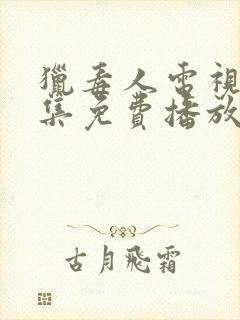 獵毒人電視
集免費播放
古月飛霜